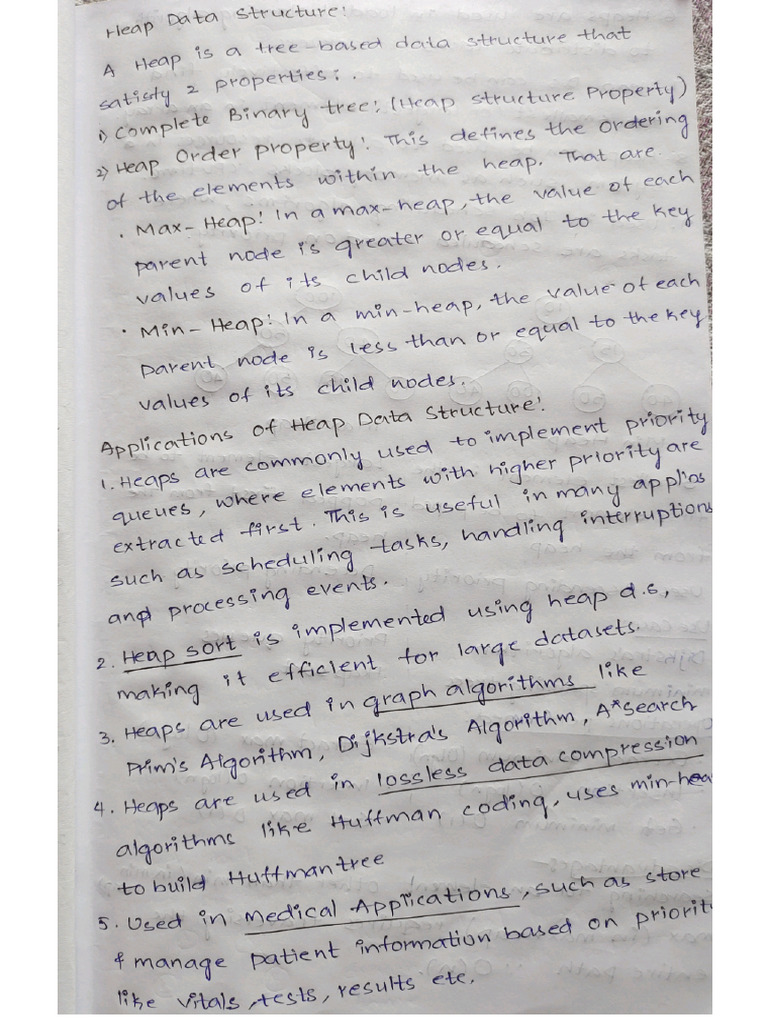 Heap Data Structure:
A Heap is a tree-based data structure that
satisfy 2 properties:.
1) Complete Binary tree: (Heap structure Property)
2) Heap Order property: This defines the ordering
of the elements within the heap. That are
• Max-Heap: In a max-heap, the value of each
parent node is greater or equal to the key
values of its child nodes.
• Min-Heap: In a min-heap, the value of each
parent node is less than or equal to the key
values of its child nodes.
Applications of Heap Data Structure:
1. Heaps are commonly used to implement priority
queues, where elements with higher priority are
extracted first. This is useful in many applios
such as scheduling tasks, handling interruptions
and processing events.
2. Heap sort is implemented using heap d.s,
making it efficient for large datasets.
3. Heaps are used in graph algorithms like
Prim's Algorithm, Dijkstra's Algorithm, A*Search
4. Heaps are used in lossless data compression
algorithms like Huffman coding, uses min-hea
to build Huffmantree
5. Used in Medical Applications, such as store
& manage patient information based on priorit
like vitals, tests, results etc.